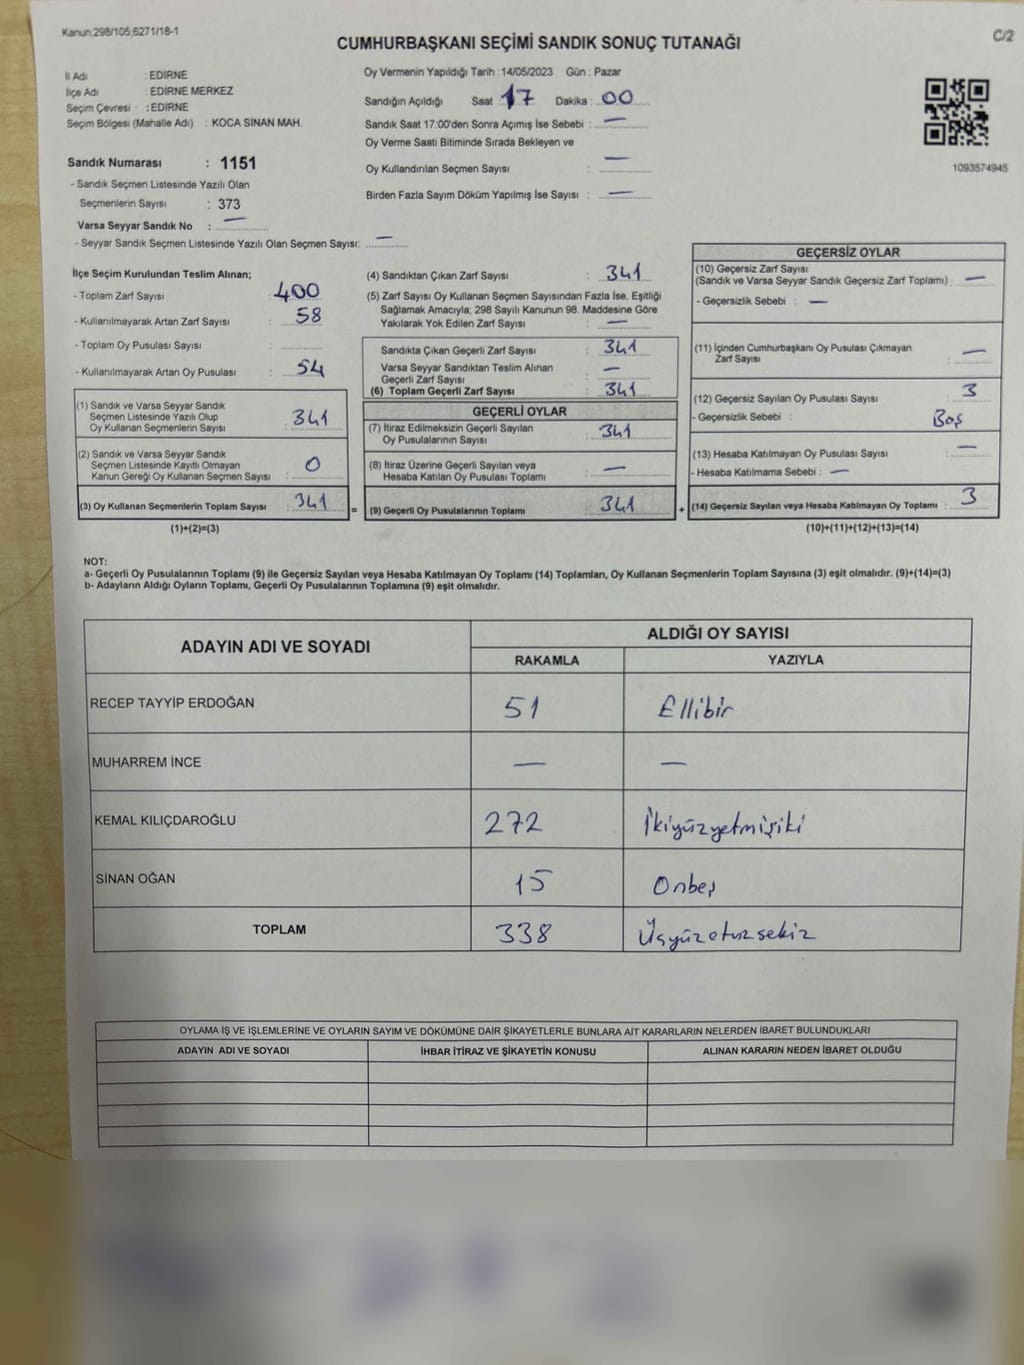 Kanun,298/105,6271/18-1
C/2
CUMHURBAŞKANI SEÇİMİ SANDIK SONUÇ TUTANAĞI
İl Adı : EDİRNE
İlçe Adı : EDİRNE MERKEZ
Seçim Çevresi : EDİRNE
Seçim Bölgesi (Mahalle Adı) : KOCA SİNAN MAH.
Sandık Numarası : 1151
- Sandık Seçmen Listesinde Yazılı Olan
Seçmenlerin Sayısı : 373
Varsa Seyyar Sandık No : —
- Seyyar Sandık Seçmen Listesinde Yazılı Olan Seçmen Sayısı: —
Oy Vermenin Yapıldığı Tarih : 14/05/2023 Gün : Pazar
Sandığın Açıldığı Saat : 17 Dakika : 00
Sandık Saat 17:00'den Sonra Açımış İse Sebebi : —
Oy Verme Saati Bitiminde Sırada Bekleyen ve
Oy Kullandırılan Seçmen Sayısı : —
Birden Fazla Sayım Döküm Yapılmış İse Sayısı : —
1093574945
İlçe Seçim Kurulundan Teslim Alınan;
- Toplam Zarf Sayısı : 400
- Kullanılmayarak Artan Zarf Sayısı : 58
- Toplam Oy Pusulası Sayısı :
- Kullanılmayarak Artan Oy Pusulası : 54
(1) Sandık ve Varsa Seyyar Sandık
Seçmen Listesinde Yazılı Olup
Oy Kullanan Seçmenlerin Sayısı : 341
(2) Sandık ve Varsa Seyyar Sandık
Seçmen Listesinde Kayıtlı Olmayan
Kanun Gereği Oy Kullanan Seçmen Sayısı : 0
(3) Oy Kullanan Seçmenlerin Toplam Sayısı : 341 =
(1)+(2)=(3)
(4) Sandıktan Çıkan Zarf Sayısı : 341
(5) Zarf Sayısı Oy Kullanan Seçmen Sayısından Fazla İse, Eşitliği
Sağlamak Amacıyla; 298 Sayılı Kanunun 98. Maddesine Göre
Yakılarak Yok Edilen Zarf Sayısı : —
Sandıkta Çıkan Geçerli Zarf Sayısı : 341
Varsa Seyyar Sandıktan Teslim Alınan
Geçerli Zarf Sayısı : —
(6) Toplam Geçerli Zarf Sayısı : 341
GEÇERLİ OYLAR
(7) İtiraz Edilmeksizin Geçerli Sayılan
Oy Pusulalarının Sayısı : 341
(8) İtiraz Üzerine Geçerli Sayılan veya
Hesaba Katılan Oy Pusulası Toplamı : —
(9) Geçerli Oy Pusulalarının Toplamı : 341 +
GEÇERSİZ OYLAR
(10) Geçersiz Zarf Sayısı
(Sandık ve Varsa Seyyar Sandık Geçersiz Zarf Toplamı) : —
- Geçersizlik Sebebi : —
(11) İçinden Cumhurbaşkanı Oy Pusulası Çıkmayan
Zarf Sayısı : —
(12) Geçersiz Sayılan Oy Pusulası Sayısı : 3
- Geçersizlik Sebebi : Boş
(13) Hesaba Katılmayan Oy Pusulası Sayısı : —
- Hesaba Katılmama Sebebi : —
(14) Geçersiz Sayılan veya Hesaba Katılmayan Oy Toplamı : 3
(10)+(11)+(12)+(13)=(14)
NOT:
a- Geçerli Oy Pusulalarının Toplamı (9) ile Geçersiz Sayılan veya Hesaba Katılmayan Oy Toplamı (14) Toplamları, Oy Kullanan Seçmenlerin Toplam Sayısına (3) eşit olmalıdır. (9)+(14)=(3)
b- Adayların Aldığı Oyların Toplamı, Geçerli Oy Pusulalarının Toplamına (9) eşit olmalıdır.
ADAYIN ADI VE SOYADI
ALDIĞI OY SAYISI
RAKAMLA YAZIYLA
RECEP TAYYİP ERDOĞAN 51 Ellibir
MUHARREM İNCE — —
KEMAL KILIÇDAROĞLU 272 İkiyüzyetmişiki
SİNAN OĞAN 15 Onbeş
TOPLAM 338 Üçyüzotuzsekiz
OYLAMA İŞ VE İŞLEMLERİNE VE OYLARIN SAYIM VE DÖKÜMÜNE DAİR ŞİKAYETLERLE BUNLARA AİT KARARLARIN NELERDEN İBARET BULUNDUKLARI
ADAYIN ADI VE SOYADI İHBAR İTİRAZ VE ŞİKAYETİN KONUSU ALINAN KARARIN NEDEN İBARET OLDUĞU